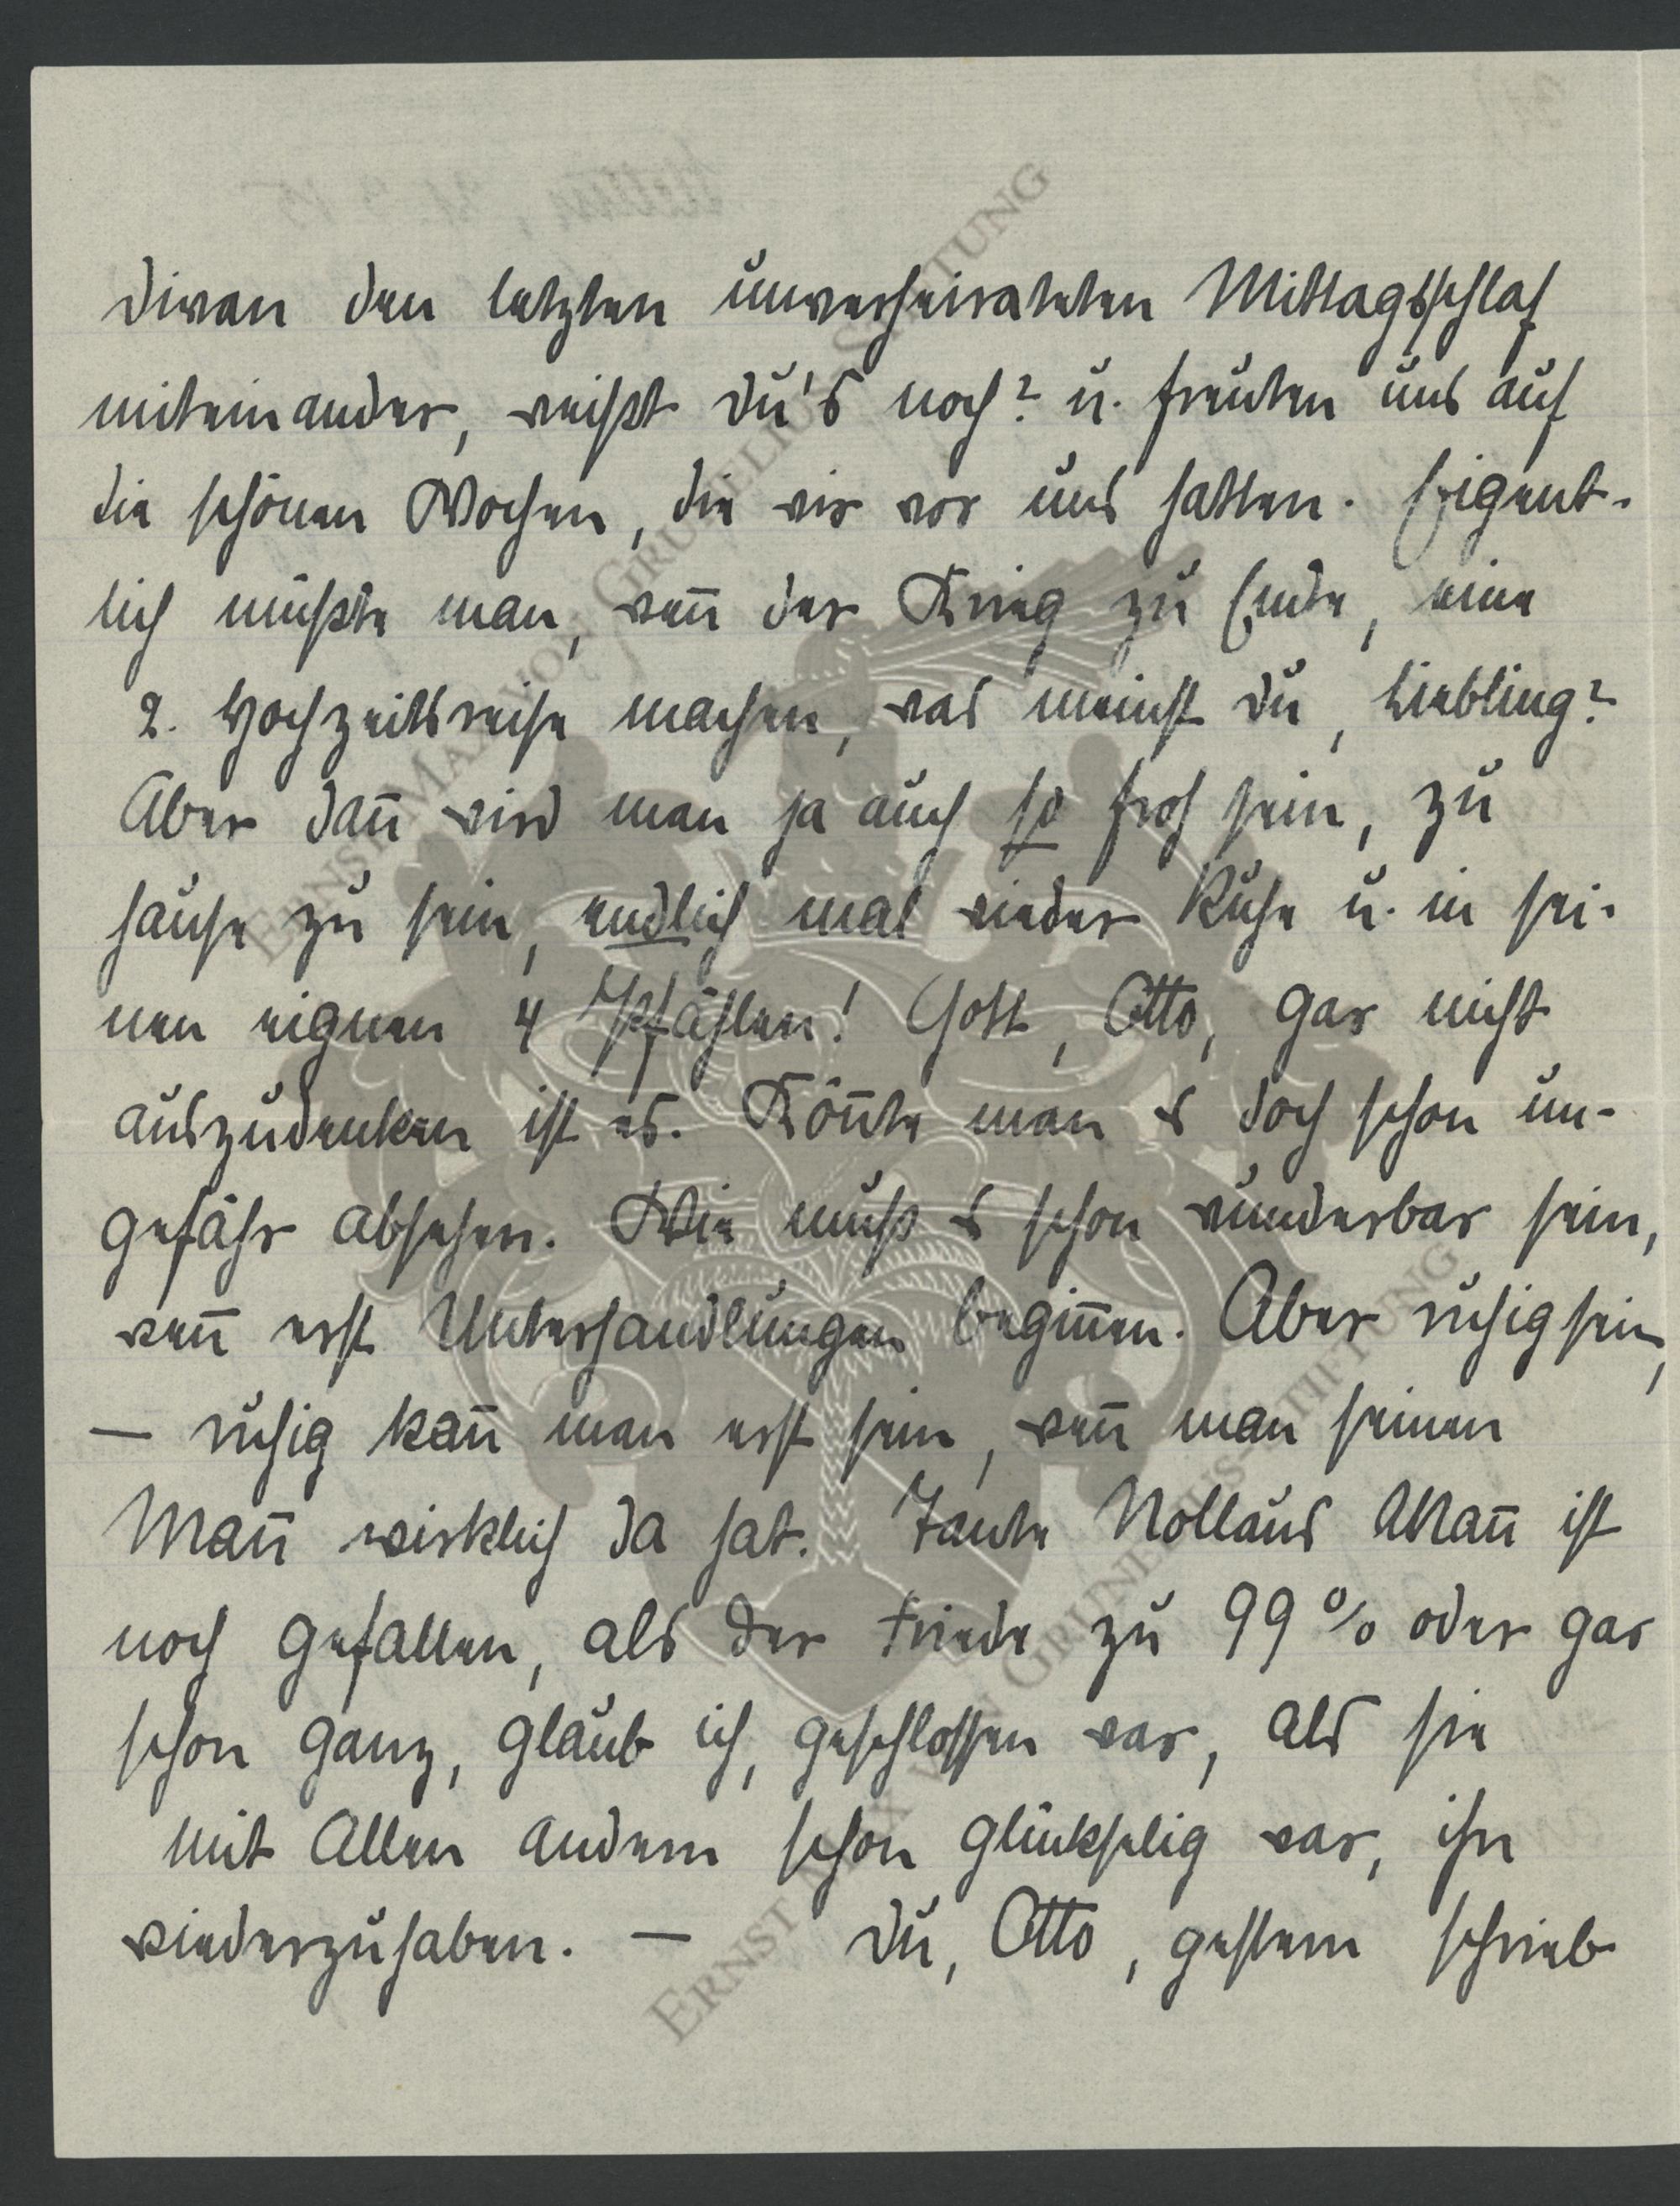 Divan den letzten unverheirateten Mittagsschlaf
miteinander, weißt Du's noch? u. freuten uns auf
die schönen Wochen, die wir vor uns hatten. Eigent-
lich müßte man, wen̄ der Krieg zu Ende, eine
2. Hochzeitsreise machen, was meinst Du, Liebling?
Aber dan̄ wird man ja auch so froh sein, zu
hause zu sein, endlich mal wieder Ruhe u. in sei-
nen eignen 4 Pfählen! Gott, Otto, gar nicht
auszudenken ist es. Kön̄te man es doch schon un-
gefähr absehen. Wie muß es schon wunderbar sein,
wen̄ erst Unterhandlungen begin̄en. Aber ruhig sein,
– ruhig kan̄ man erst sein, wen̄ man seinen
Man̄ wirklich da hat. Tante Nollaus Man̄ ist
noch gefallen, als der Friede zu 99 % oder gar
schon ganz, glaub ich, geschlossen war, als sie
mit Allen andern schon glückselig war, ihn
wiederzuhaben. – Du, Otto, gestern schrieb
ERNST MAX VON GRUNELIUS-STIFTUNG
ERNST MAX VON GRUNELIUS-STIFTUNG